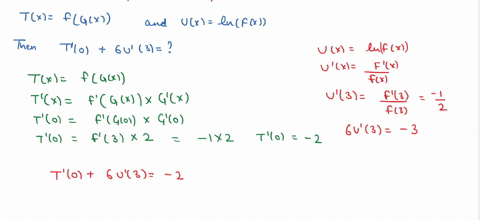 T(x) = f(G(x)) and U(x) = ln(f(x))
Then T'(0) + 6U'(3) = ?
T(x) = f(G(x))
T'(x) = f'(G(x)) × G'(x)
T'(0) = f'(G(0)) × G'(0)
T'(0) = f'(3) × 2 = -1 × 2 T'(0) = -2
U(x) = ln(f(x))
U'(x) = F'(x) / f(x)
U'(3) = f'(3) / f(3) = -1 / 2
6U'(3) = -3
T'(0) + 6U'(3) = -2